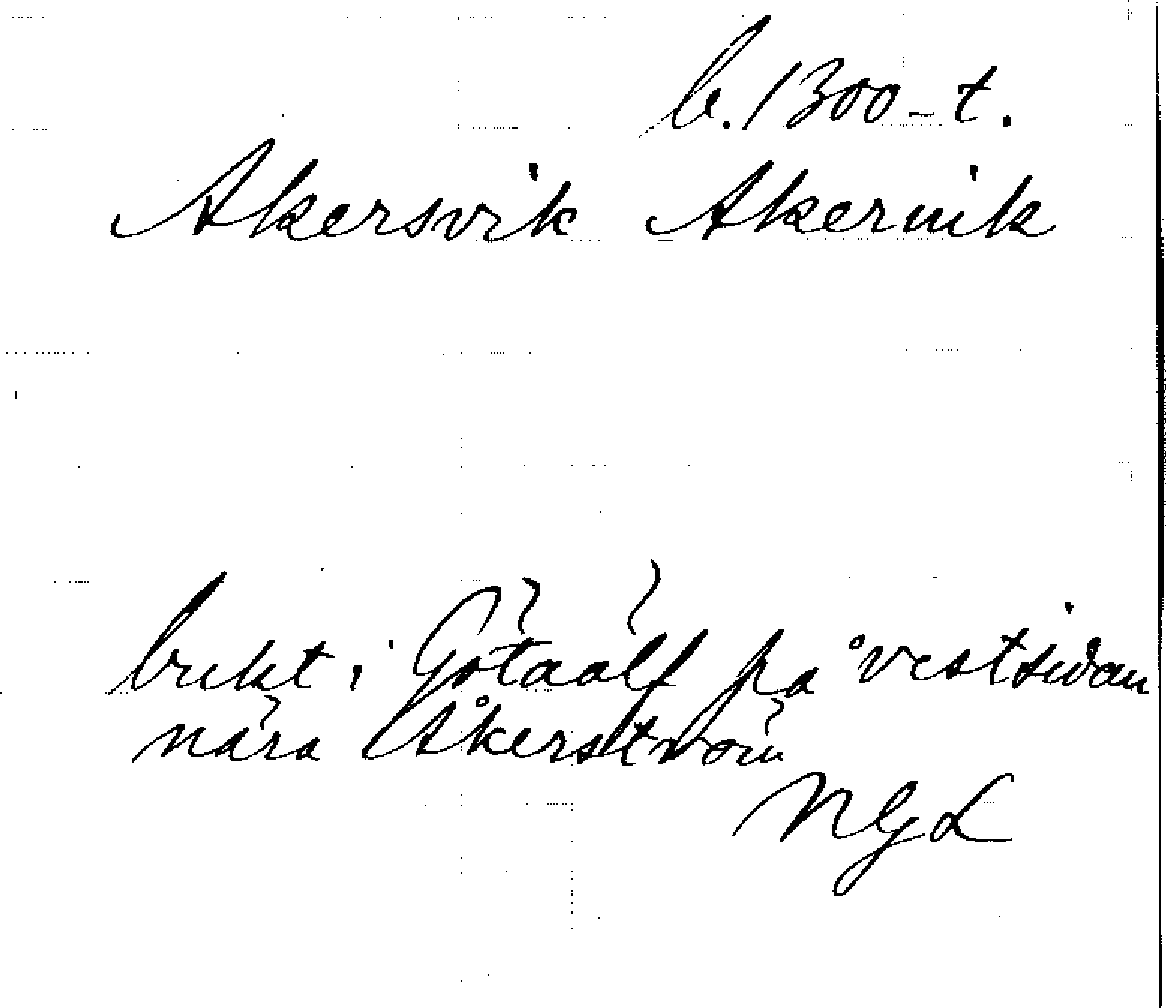 b. 1300-t.
Akersvik Akeruik
bukt i Götaälf på vestsidan
nära Åkerström
NGL